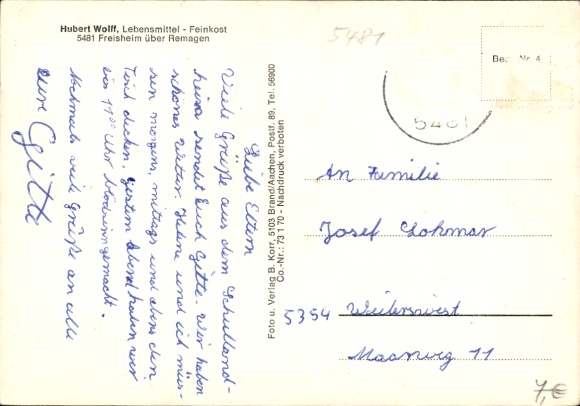 Hubert Wolff, Lebensmittel - Feinkost
5481 Freisheim über Remagen
5481
Liebe Eltern
Viele Grüße aus dem Schulland-
heim sendet Euch Gitte. Wir haben
schönes Wetter. Helene und ich müs-
sen morgens, mittags und abens den
Tisch decken. Gestern Abend haben wir
bis 11 00 Uhr Blödsinn gemacht.
Nochmals viele Grüße an alle
eure Gitte
Foto u. Verlag B. Korr, 5103 Brand/Aachen, Postf. 89, Tel. 56900
Co.-Nr.: 73 1 70 - Nachdruck verboten
Nr. 4
An Familie
Josef Lohmar
5354 Weilerswist
11
7,€